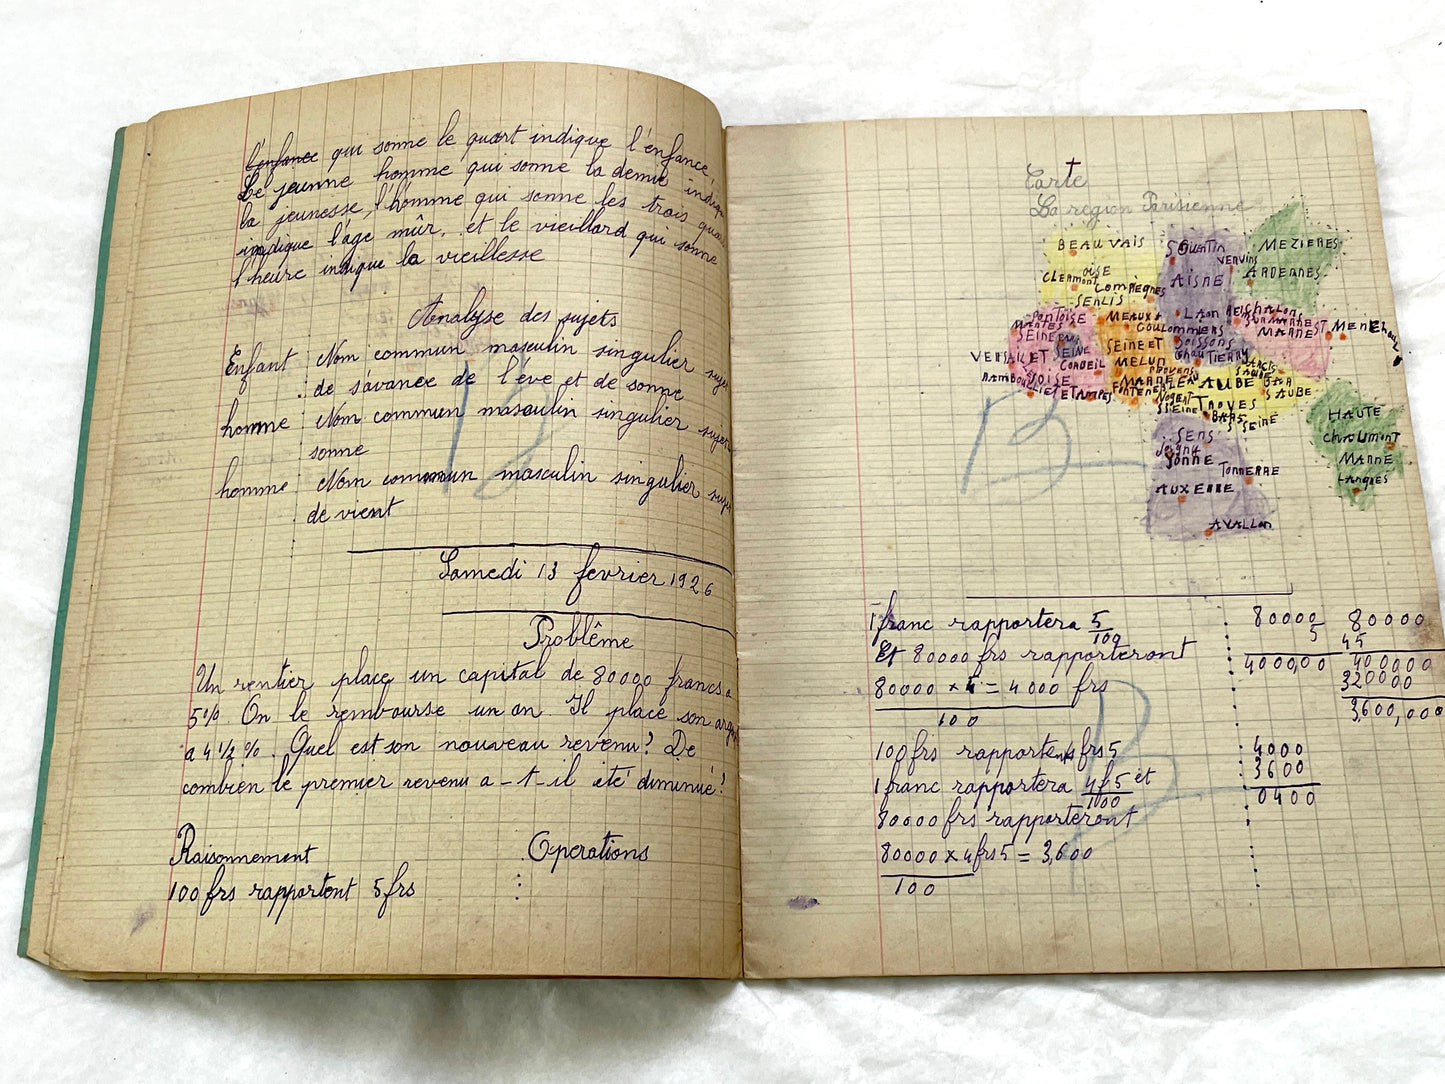 l'enfance qui sonne le quart indique l'enfance,
Le jeunne homme qui sonne la demie indique
la jeunesse, l'homme qui sonne les trois quarts
indique l'age mûr, et le vieillard qui sonne
l'heure indique la vieillesse
Analyse des sujets
Enfant : Nom commun masculin singulier sujet
de s'avance de lève et de sonne
homme : Nom commun masculin singulier sujet
sonne
homme : Nom commun masculin singulier sujet
de vient
Samedi 13 fevrier 1926
Problême
Un rentier place un capital de 80000 francs a
5%. On le rembourse un an. Il place son argent
a 4 1/2 %. Quel est son nouveau revenu? De
combien le premier revenu a-t-il été diminué?
Raisonnement : Operations
100 frs rapportent 5 frs :
Carte
La région Parisienne
BEAUVAIS
S QUENTIN
MEZIERES
VERVINS
OISE
CLERMONT
COMPIEGNES
AISNE
ARDENNES
SENLIS
PONTOISE
MANTES
MEAUX
LAON
CHALONS
SEINE
COULOMMIERS
SUR MARNE
MARNE
SEINE ET
SOISSONS
VERSAI
ET SEINE
CORBEIL
MELUN
CHAU TIERRY
OISE
PROVENS
ARCIS
S AUBE
RAMBOUILLET
ETAMPES
MARNE
AUBE
BAR
S AUBE
NOGENT
S SEINE
TROYES
BAR S
S SEINE
HAUTE
SENS
Joigny
YONNE
CHAUMONT
TONNERRE
MARNE
LANGRES
AUXERRE
AVALLON
B
1 franc rapportera 5/100
Et 80000 frs rapporteront
80000 × 5 = 4000 frs
100
100 frs rapportent frs 5
1 franc rapportera 4f5 et
100
80000 frs rapporteront
80000 × 4frs5 = 3,600
100
80000 80000
5 45
4000,00 400000
320000
3,600,000
4000
3600
0400
B